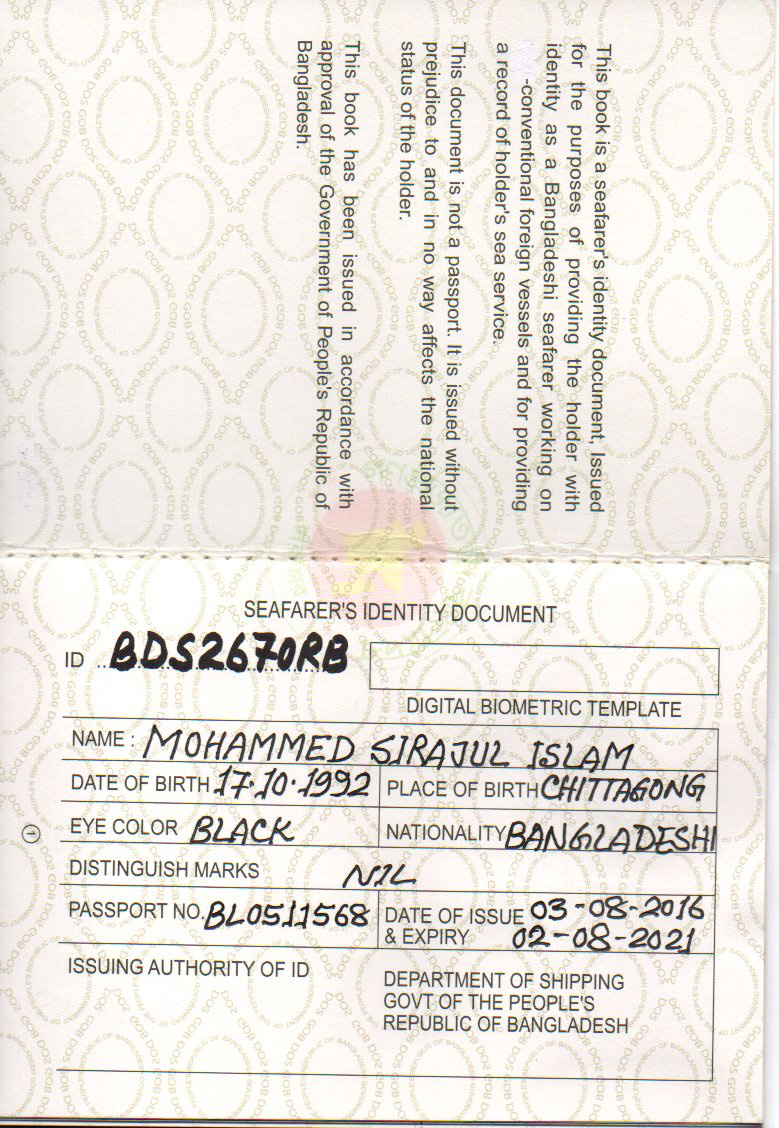 This book is a seafarer's identity document, Issued
for the purposes of providing the holder with
identity as a Bangladeshi seafarer working on
-conventional foreign vessels and for providing
a record of holder's sea service.
This document is not a passport. It is issued without
prejudice to and in no way affects the national
status of the holder.
This book has been issued in accordance with
approval of the Government of People's Republic of
Bangladesh.
SEAFARER'S IDENTITY DOCUMENT
ID BDS2670RB
DIGITAL BIOMETRIC TEMPLATE
NAME : MOHAMMED SIRAJUL ISLAM
DATE OF BIRTH 17.10.1992 PLACE OF BIRTH CHITTAGONG
EYE COLOR BLACK NATIONALITY BANGLADESHI
DISTINGUISH MARKS NIL
PASSPORT NO. BL0511568 DATE OF ISSUE 03-08-2016
& EXPIRY 02-08-2021
ISSUING AUTHORITY OF ID
DEPARTMENT OF SHIPPING
GOVT OF THE PEOPLE'S
REPUBLIC OF BANGLADESH
1